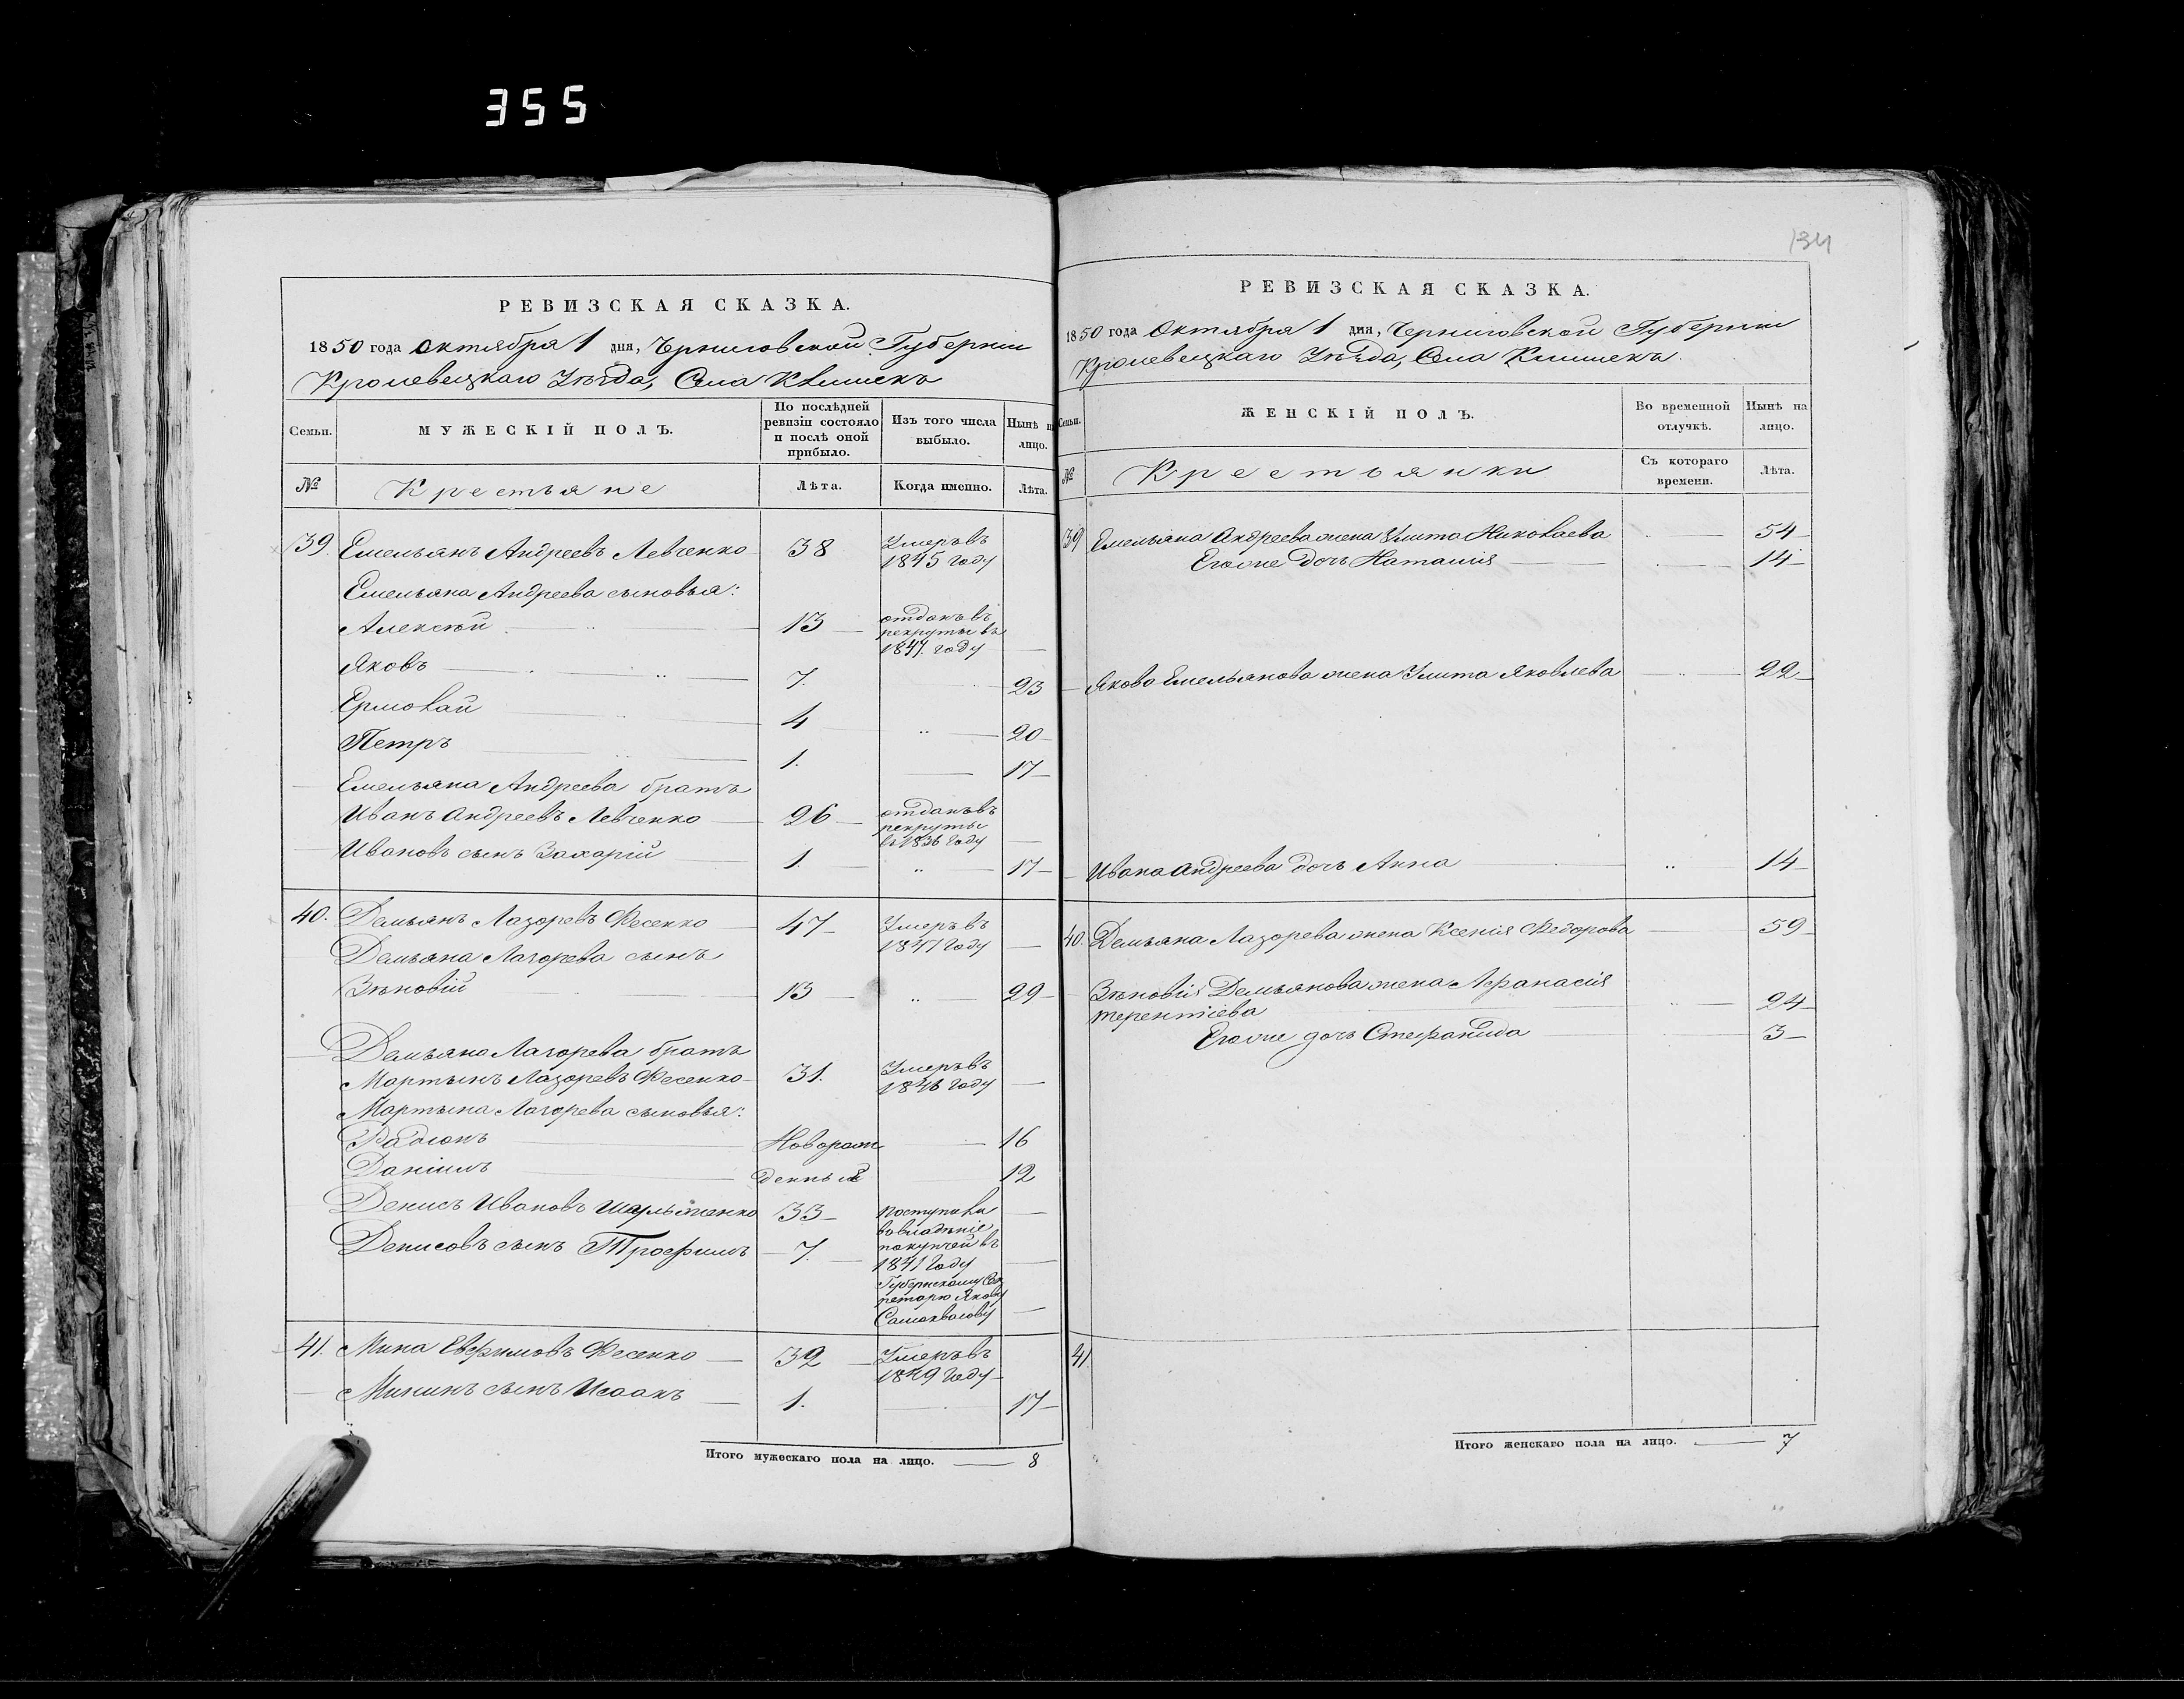 355
РЕВИЗСКАЯ СКАЗКА.
1850 года Октября 1 дня, Черниговской Губерніи
Кролевецкаго Уѣзда, Села Клишекъ
Семьи.
МУЖЕСКІЙ ПОЛЪ.
По послѣдней ревизіи состояло и послѣ оной прибыло.
Изъ того числа выбыло.
Нынѣ на лицо.
№
Крестьяне
Лѣта.
Когда именно.
Лѣта.
39. Емельянъ Андреевъ Левченко 38 Умеръ въ 1845 году
Емельяна Андреева сыновья:
Алексѣй 13 отданъ въ рекруты въ 1847. году
Яковъ 7. 23
Ермолай 4 20
Петръ 1. 17
Емельяна Андреева братъ
Иванъ Андреевъ Левченко 26 отданъ въ рекруты въ 1836 году
Ивановъ сынъ Захарій 1. 17
40. Демьянъ Лазоревъ Фесенко 47 Умеръ въ 1847 году
Демьяна Лазорева сынъ
Зѣновій 13 29
Демьяна Лазорева братъ
Мартынъ Лазоревъ Фесенко 31. Умеръ въ 1846 году
Мартына Лазорева сыновья:
Радіонъ Новорож 16
Даніилъ денные 12
Денисъ Ивановъ 33 поступили
Денисовъ сынъ Трофимъ 7. во владѣніе
покупкой въ
1841 году
Губернскому Сек
ретарю Якову
Самоквасову
41. Мина Евфимовъ Фесенко 32 Умеръ въ 1849 году
Мининъ сынъ Исаакъ 1. 17
Итого мужескаго пола на лицо. 8
134
РЕВИЗСКАЯ СКАЗКА.
1850 года Октября 1 дня, Черниговской Губерніи
Кролевецкаго Уѣзда, Села Клишекъ.
Семьи.
ЖЕНСКІЙ ПОЛЪ.
Во временной отлучкѣ.
Нынѣ на лицо.
№
Крестьянки
Съ котораго времени.
Лѣта.
39 Емельяна Андреева жена Улита Николаева 54
Его же дочь Наталия 14
Якова Емельянова жена Улита Яковлева 22
Ивана Андреева дочь Анна 14
40. Демьяна Лазорева жена Ксенія Федорова 59
Зѣновія Демьянова жена Афанасія
терентіева 24
Его же дочь Стефанида 3
41.
Итого женскаго пола на лицо. 7